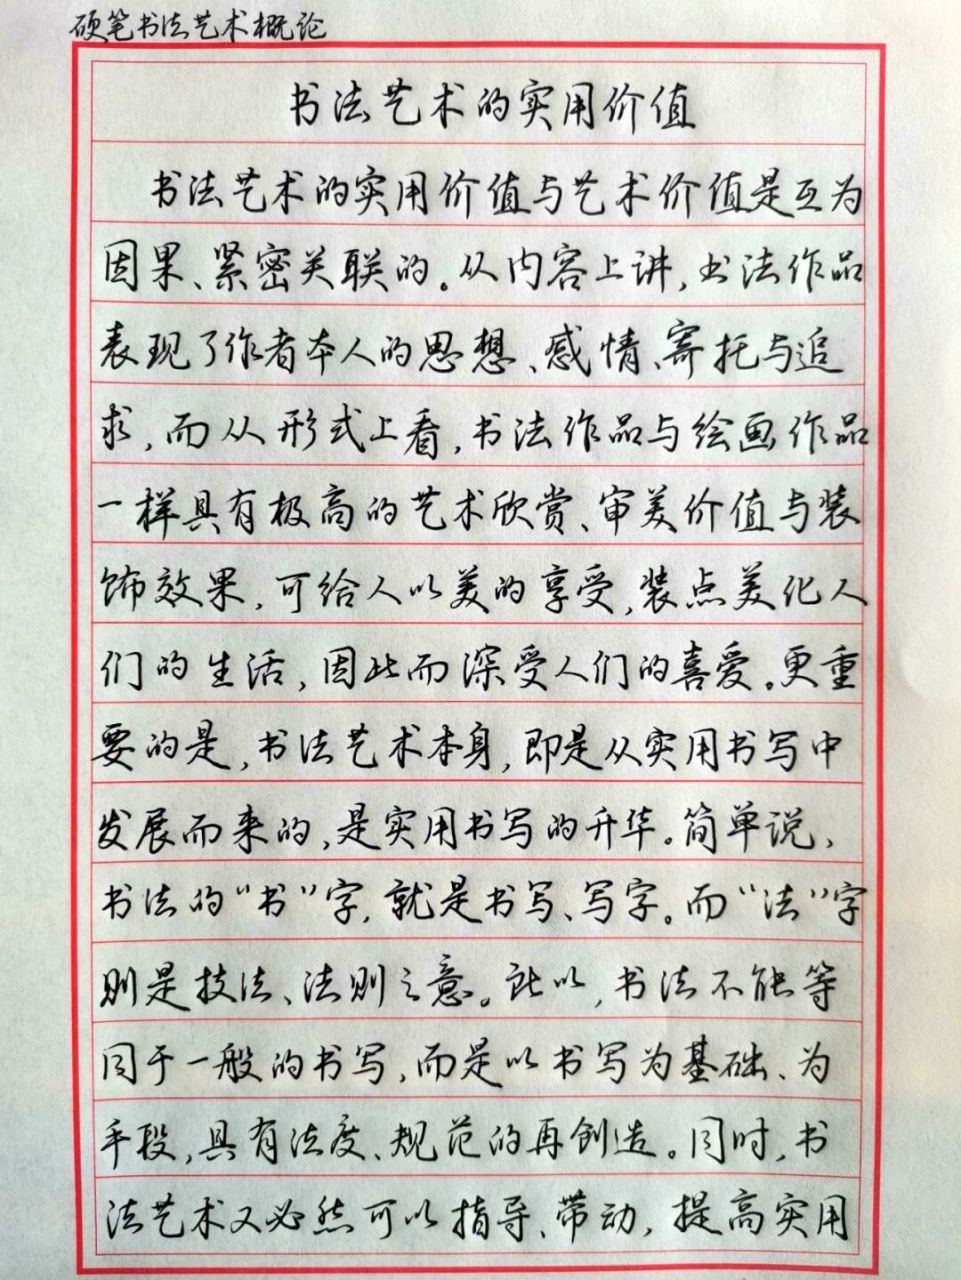 硬笔书法艺术概论
书法艺术的实用价值
书法艺术的实用价值与艺术价值是互为
因果、紧密关联的。从内容上讲,书法作品
表现了作者本人的思想、感情、寄托与追
求,而从形式上看,书法作品与绘画作品
一样具有极高的艺术欣赏、审美价值与装
饰效果,可给人以美的享受,装点美化人
们的生活,因此而深受人们的喜爱。更重
要的是,书法艺术本身,即是从实用书写中
发展而来的,是实用书写的升华。简单说,
书法的“书”字,就是书写、写字。而“法”字
则是技法、法则之意。所以,书法不能等
同于一般的书写,而是以书写为基础、为
手段,具有法度、规范的再创造。同时,书
法艺术又必然可以指导、带动,提高实用